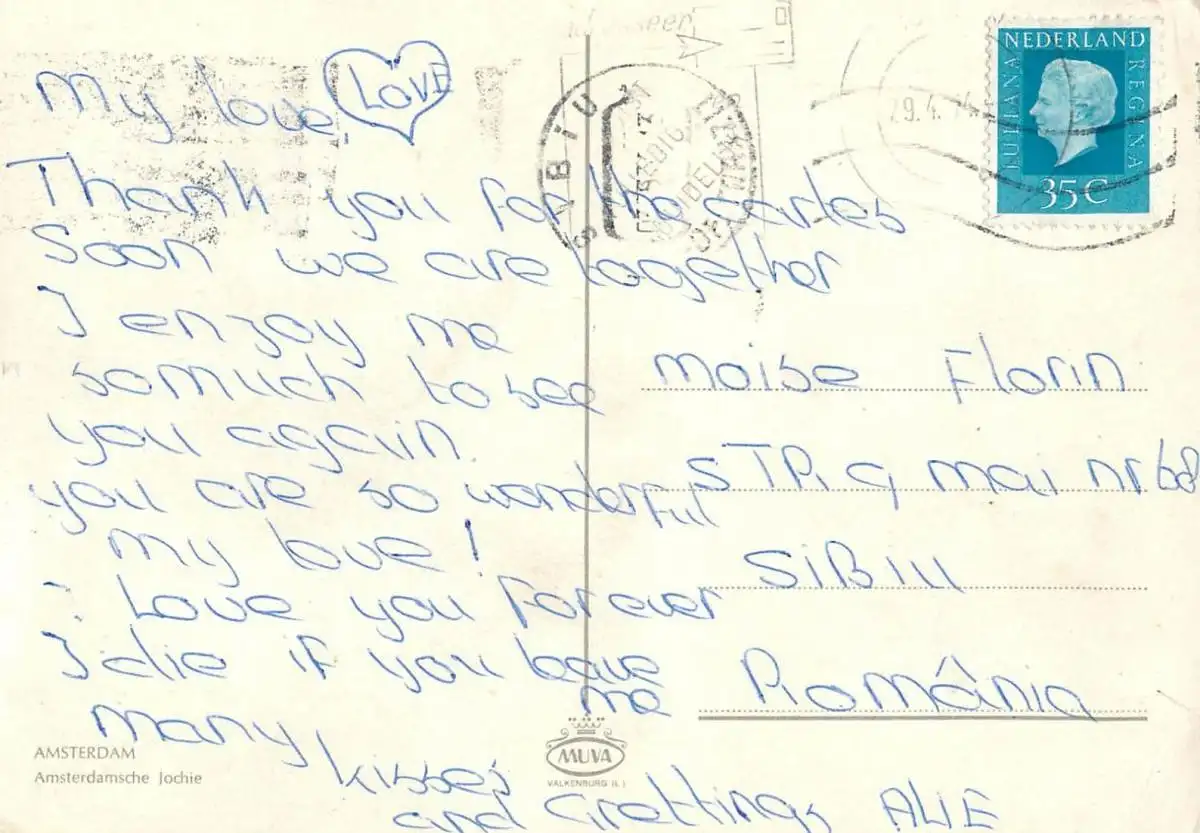 My love LOVE
Thank you for the cartes
Soon we are together
I enjoy me
so much to see
you again
you are so wonderful
My love!
I Love you Forever
I die if you leave
me
many,
kisses
and Grettings ALIE
AMSTERDAM
Amsterdamsche Jochie
MUVA
VALKENBURG (L)
SIBIU
29.4.74
NEDERLAND
JULIANA REGINA
35 C
Moise Florin
STR. 9 mai nr 68
SiBiu
România